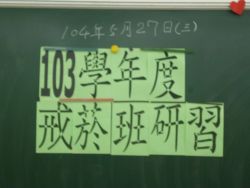 104年5月27日(三)
103學年度
戒菸班研習